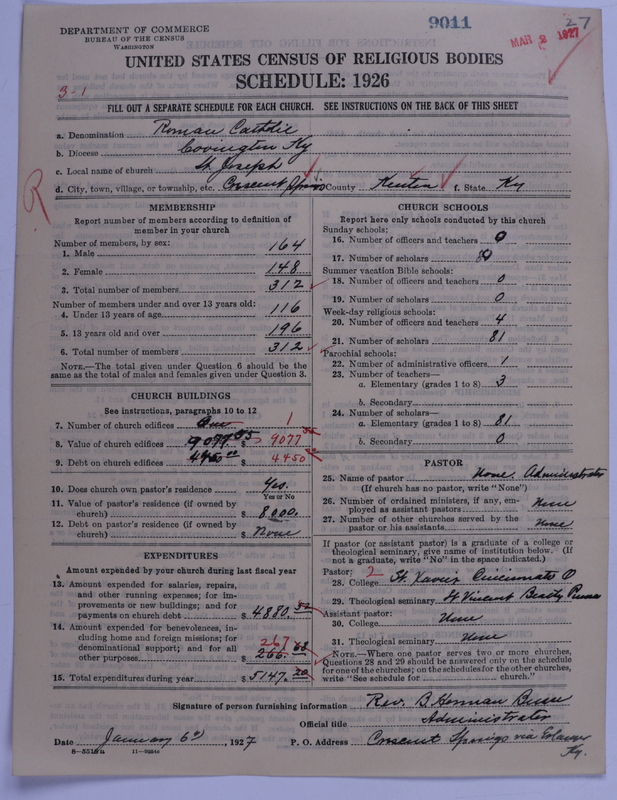 DEPARTMENT OF COMMERCE
BUREAU OF THE CENSUS
WASHINGTON
9011
MAR 2 1927
27
UNITED STATES CENSUS OF RELIGIOUS BODIES
SCHEDULE: 1926
3-1
FILL OUT A SEPARATE SCHEDULE FOR EACH CHURCH. SEE INSTRUCTIONS ON THE BACK OF THIS SHEET
a. Denomination Roman Catholic
b. Diocese Covington Ky
c. Local name of church St. Joseph
d. City, town, village, or township, etc. Crescent Springs County Kenton f. State Ky
R
MEMBERSHIP
Report number of members according to definition of
member in your church
Number of members, by sex:
1. Male 164
2. Female 148
3. Total number of members 312
Number of members under and over 13 years old:
4. Under 13 years of age 116
5. 13 years old and over 196
6. Total number of members 312
NOTE.—The total given under Question 6 should be
same as the total of males and females given under Question 3.
CHURCH BUILDINGS
See instructions, paragraphs 10 to 12
7. Number of church edifices One 1
8. Value of church edifices $ 9077.35 9077 35
9. Debt on church edifices $ 4450.00 4450
10. Does church own pastor's residence Yes.
Yes or No
11. Value of pastor's residence (if owned by
church) $ 8000.
12. Debt on pastor's residence (if owned by
church) $ None
EXPENDITURES
Amount expended by your church during last fiscal year
13. Amount expended for salaries, repairs,
and other running expenses; for im-
provements or new buildings; and for
payments on church debt $ 4880.52
14. Amount expended for benevolences, in-
cluding home and foreign missions; for
denominational support; and for all
other purposes $ 266.68 267
15. Total expenditures during year $ 5147.20
CHURCH SCHOOLS
Report here only schools conducted by this church
Sunday schools:
16. Number of officers and teachers 0
17. Number of scholars
Summer vacation Bible schools:
18. Number of officers and teachers 0
19. Number of scholars 0
Week-day religious schools:
20. Number of officers and teachers 4
21. Number of scholars 81
Parochial schools:
22. Number of administrative officers 1
23. Number of teachers—
a. Elementary (grades 1 to 8) 3
b. Secondary
24. Number of scholars—
a. Elementary (grades 1 to 8) 81
b. Secondary 0
PASTOR
25. Name of pastor None. Administrator
(If church has no pastor, write "None")
26. Number of ordained ministers, if any, em-
ployed as assistant pastors None
27. Number of other churches served by the
pastor or his assistants None
If pastor (or assistant pastor) is a graduate of a college or
theological seminary, give name of institution below. (If
not a graduate, write "No" in the space indicated.)
Pastor: 2
28. College St. Xavier Cincinnati O
29. Theological seminary St Vincent Beatty Penna
Assistant pastor:
30. College None
31. Theological seminary None
NOTE.—Where one pastor serves two or more churches,
Questions 28 and 29 should be answered only on the schedule
for one of the churches; on the schedules for the other churches,
write "See schedule for church."
Signature of person furnishing information Rev. B. Herman
Official title Administrator
Date January 6th, 1927 P. O. Address Crescent Springs via Erlanger
Ky.
8—5516a 11—9984a